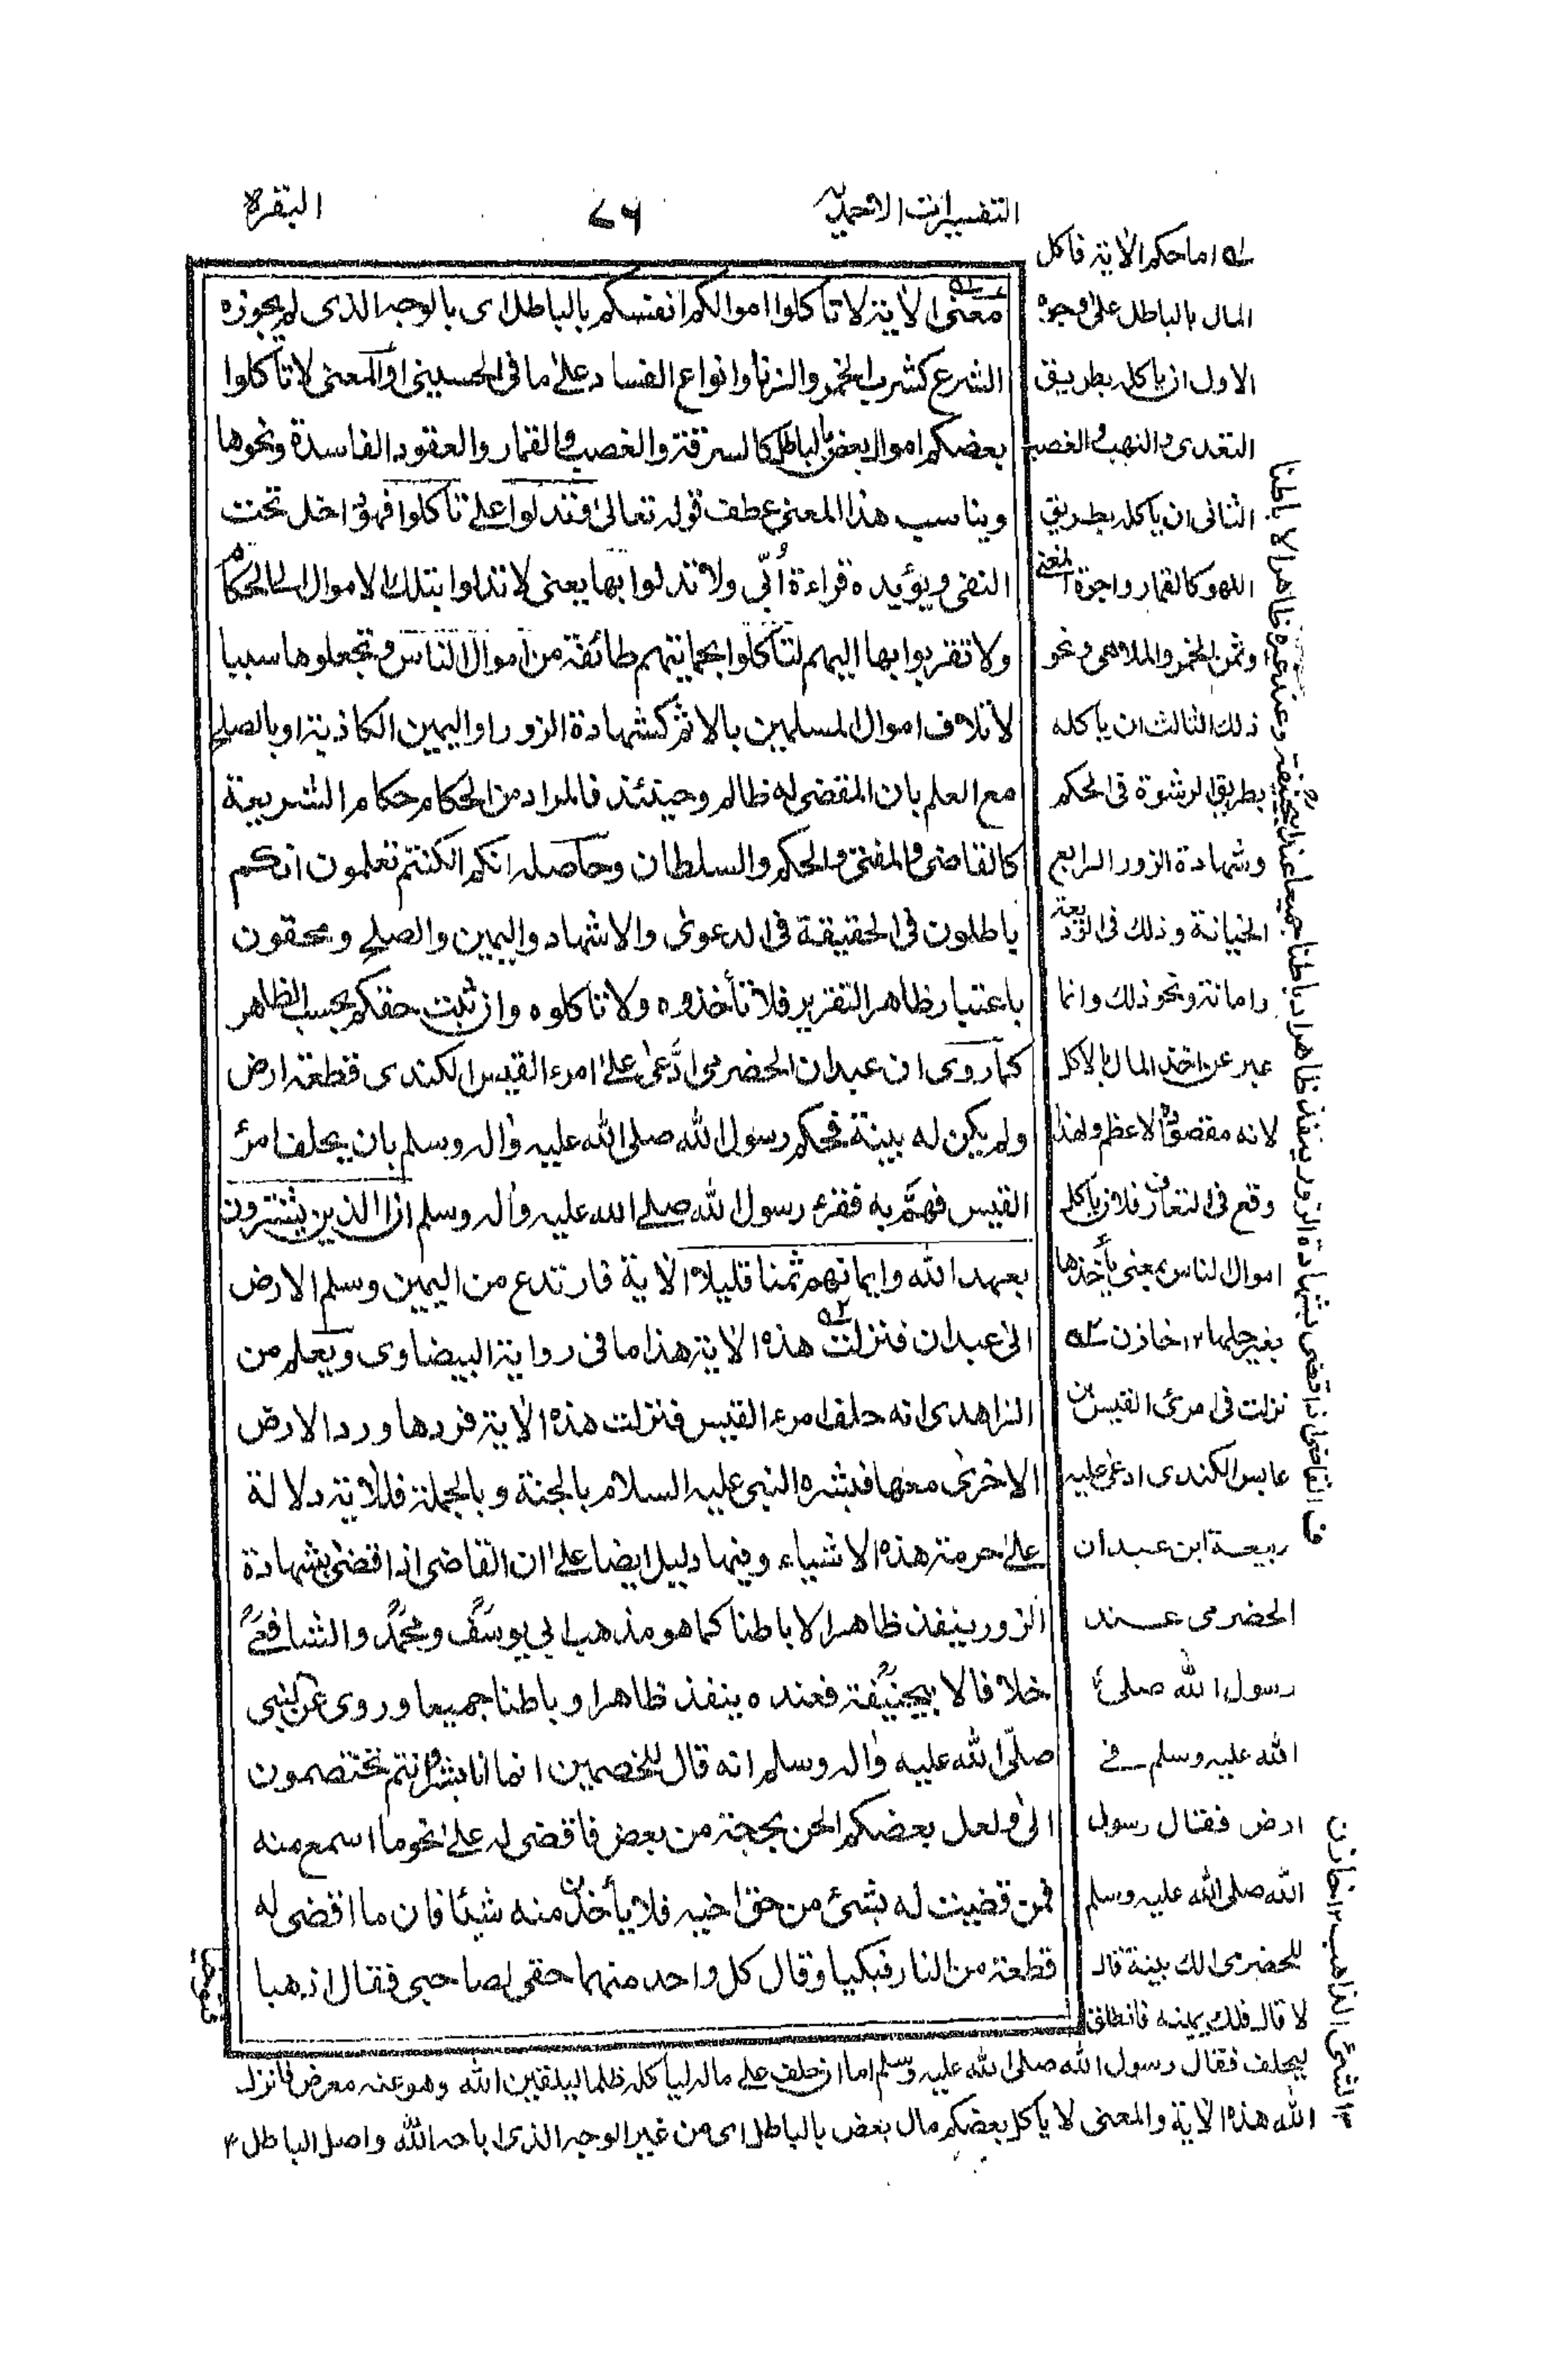 التفسيرات الاحمدية
٧٦
البقرة
معنى الاٰية لا تاكلوا اموالكم انفسكم بالباطل اى بالوجه الذى لم يجوزه
الشرع كشرب الخمر والزنا وانواع الفساد على ما فى الحسينى او المعنى لا تاكلوا
بعضكم اموال بعض بالباطل كالسرقة والغصب والقمار والعقود الفاسدة ونحوها
ويناسب هذا المعنى عطف قوله تعالىٰ وتدلوا على تاكلوا فهو داخل تحت
النفى ويؤيده قراءة اُبّى ولا تدلوا بها يعنى لا تدلوا بتلك الاموال الى الحكام
ولا تقربوا بها اليهم لتاكلوا بحمايتهم طائفة من اموال الناس وتجعلوها سببا
لاتلاف اموال المسلمين بالاثم كشهادة الزور او اليمين الكاذبة او بالصلح
مع العلم بان المقضى له ظالم وحينئذ فالمراد من الحكام حكام الشريعة
كالقاضى والمفتى والحكم والسلطان وحاصله انكم ان كنتم تعلمون انكم
باطلون فى الحقيقة فى الدعوىٰ والاشهاد واليمين والصلح ومحقون
باعتبار ظاهر التقرير فلا تأخذوه ولا تاكلوه وان ثبت حقكم بحسب الظاهر
كما روى ان عبدان الحضرمى ادَّعىٰ علىٰ امرء القيس الكندى قطعة ارض
ولم يكن له بينة فحكم رسول الله صلى الله عليه واٰله وسلم بان يحلف امرؤ
القيس فهمَّ به فقرء رسول الله صلى الله عليه واٰله وسلم ان الذين يشترون
بعهد الله وايمانهم ثمنا قليلا الاٰية فارتدع من اليمين وسلم الارض
الىٰ عبدان فنزلت هذه الاٰية هذا ما فى رواية البيضاوى ويعلم من
الزاهدى انه حلف امرء القيس فنزلت هذه الاٰية فردها ورد الارض
الاخرىٰ معها فبشره النبى عليه السلام بالجنة وبالجملة فللاٰية دلالة
علىٰ حرمة هذه الاشياء وفيها دليل ايضا علىٰ ان القاضى اذا قضىٰ بشهادة
الزور ينفذ ظاهرا لا باطنا كما هو مذهب ابى يوسف ومحمد والشافعى
خلافا لابى حنيفة فعنده ينفذ ظاهرا وباطنا جميعا وروى عن النبى
صلى الله عليه واٰله وسلم انه قال للخصمين انما انا بشر وانتم تختصمون
الىّ ولعل بعضكم الحن بحجة من بعض فاقضى له على نحو ما اسمع منه
فمن قضيت له بشئ من حق اخيه فلا يأخذن منه شيئا فان ما اقضى له
قطعة من النار فبكيا وقال كل واحد منهما حقى لصاحبى فقال اذهبا
لـه اما حكم الاٰية فاكل
المال بالباطل علىٰ وجوه
الاول ان ياكله بطريق
التعدى والنهب والغصب
الثانى ان ياكله بطريق
اللهو كالقمار واجرة المغنى
وثمن الخمر والملاهى ونحو
ذلك الثالث ان ياكله
بطريق الرشوة فى الحكم
وشهادة الزور الرابع
الخيانة وذلك فى الوديعة
والامانة ونحو ذلك وانما
عبر عن اخذ المال بالاكل
لانه مقصود الاعظم ولهذا
وقع فى التعارف فلان ياكل
اموال الناس بمعنى يأخذها
بغير حلها ١٢ خازن ٢ـه
نزلت فى امرئ القيس بن
عابس الكندى ادعىٰ عليه
ربيعة ابن عبدان
الحضرمى عند
رسول الله صلى
الله عليه وسلم فى
ارض فقال رسول
الله صلى الله عليه وسلم
للحضرمى الك بينة قال
لا قال فلك يمينه فانطلق
ليحلف فقال رسول الله صلى الله عليه وسلم اما ان حلف على ماله لياكله ظلما ليلقين الله وهو عنه معرض فانزل
الله هذه الاٰية والمعنى لا ياكل بعضكم مال بعض بالباطل اى من غير الوجه الذى اباحه الله واصل الباطل
الشئ الذاهب ١٢ خازن
ف القاضى اذا قضى بشهادة الزور ينفذ ظاهرا وباطنا جميعا عند ابى حنيفة وعند غيره ظاهرا لا باطنا